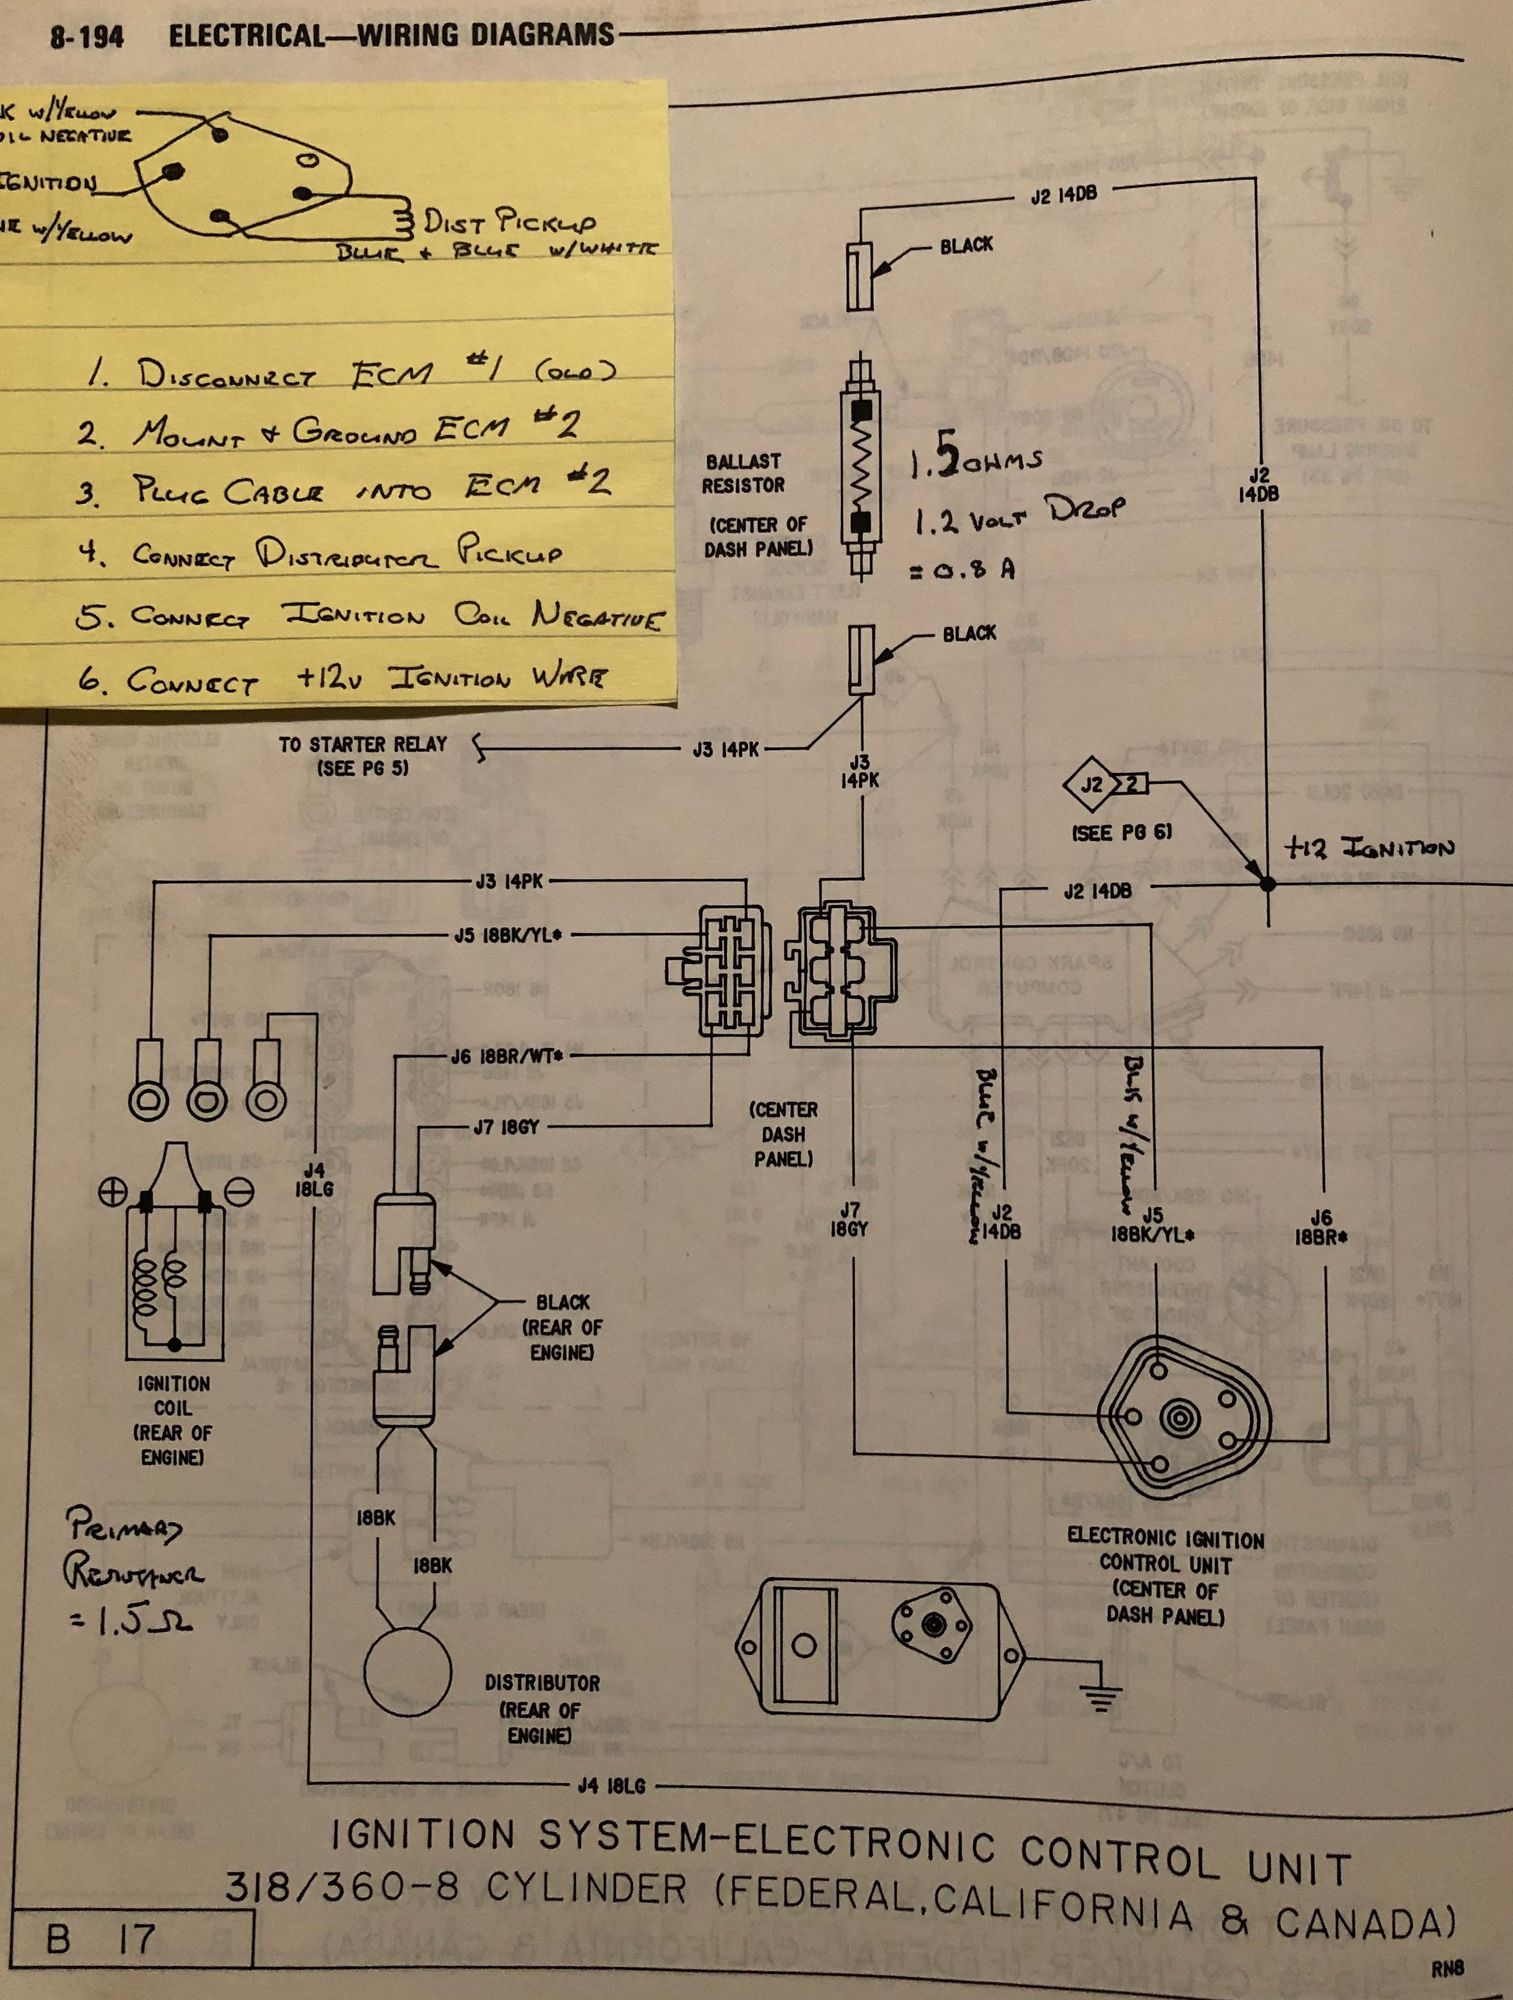 8-194 ELECTRICAL—WIRING DIAGRAMS
K W/YELLOW
OIL NEGATIVE
IGNITION
UE W/YELLOW
DIST PICKUP
BLUE + BLUE W/WHITE
1. DISCONNECT ECM #1 (OLD)
2. MOUNT + GROUND ECM #2
3. PLUG CABLE INTO ECM #2
4. CONNECT DISTRIBUTOR PICKUP
5. CONNECT IGNITION COIL NEGATIVE
6. CONNECT +12V IGNITION WIRE
J2 14DB
BLACK
BALLAST
RESISTOR
(CENTER OF
DASH PANEL)
1.5 OHMS
1.2 VOLT DROP
= 0.8 A
J2
14DB
BLACK
TO STARTER RELAY
(SEE PG 5)
J3 14PK
J3
14PK
J2 2
(SEE PG 6)
+12 IGNITION
J3 14PK
J2 14DB
J5 18BK/YL*
J6 18BR/WT*
J7 18GY
(CENTER
DASH
PANEL)
BLUE W/YELLOW
BLK W/YELLOW
J4
18LG
J7
18GY
J2
14DB
J5
18BK/YL*
J6
18BR*
+ −
BLACK
(REAR OF
ENGINE)
IGNITION
COIL
(REAR OF
ENGINE)
PRIMARY
RESISTANCE
= 1.5 Ω
18BK
18BK
ELECTRONIC IGNITION
CONTROL UNIT
(CENTER OF
DASH PANEL)
DISTRIBUTOR
(REAR OF
ENGINE)
J4 18LG
IGNITION SYSTEM-ELECTRONIC CONTROL UNIT
318/360-8 CYLINDER (FEDERAL,CALIFORNIA & CANADA)
B 17
RN8